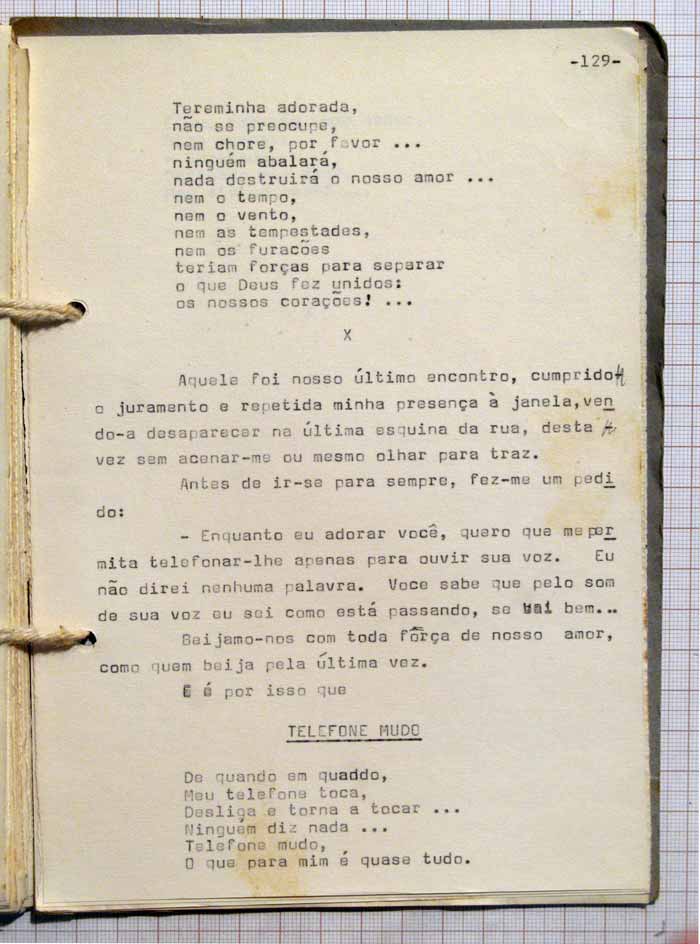 -129-
Tereminha adorada,
não se preocupe,
nem chore, por favor ...
ninguém abalará,
nada destruirá o nosso amor ...
nem o tempo,
nem o vento,
nem as tempestades,
nem os furacões
teriam forças para separar
o que Deus fez unidos:
os nossos corações! ...
X
Aquele foi nosso último encontro, cumprido
o juramento e repetida minha presença à janela,ven
do-a desaparecer na última esquina da rua, desta
vez sem acenar-me ou mesmo olhar para traz.
Antes de ir-se para sempre, fez-me um pedi
do:
- Enquanto eu adorar você, quero que me per
mita telefonar-lhe apenas para ouvir sua voz. Eu
não direi nenhuma palavra. Voce sabe que pelo som
de sua voz eu sei como está passando, se vai bem...
Beijamo-nos com toda fôrça de nosso amor,
como quem beija pela última vez.
E é por isso que
TELEFONE MUDO
De quando em quaddo,
Meu telefone toca,
Desliga e torna a tocar ...
Ninguém diz nada ...
Telefone mudo,
O que para mim é quase tudo.